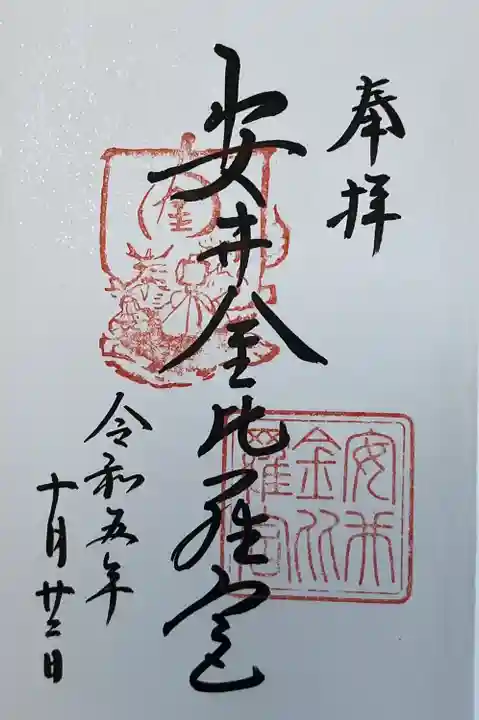 奉拝
安井金比羅宮
安井
金比
羅宮
金
令和五年
十月廿二日